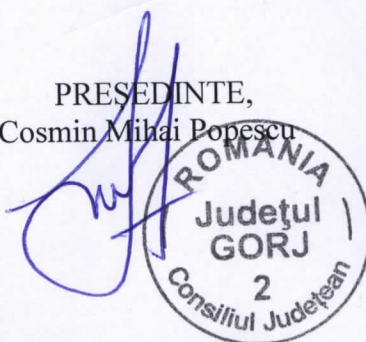 PREȘEDINTE,
Cosmin Mihai Popescu
ROMÂNIA
Judeţul
GORJ
2
Consiliul Judeţean